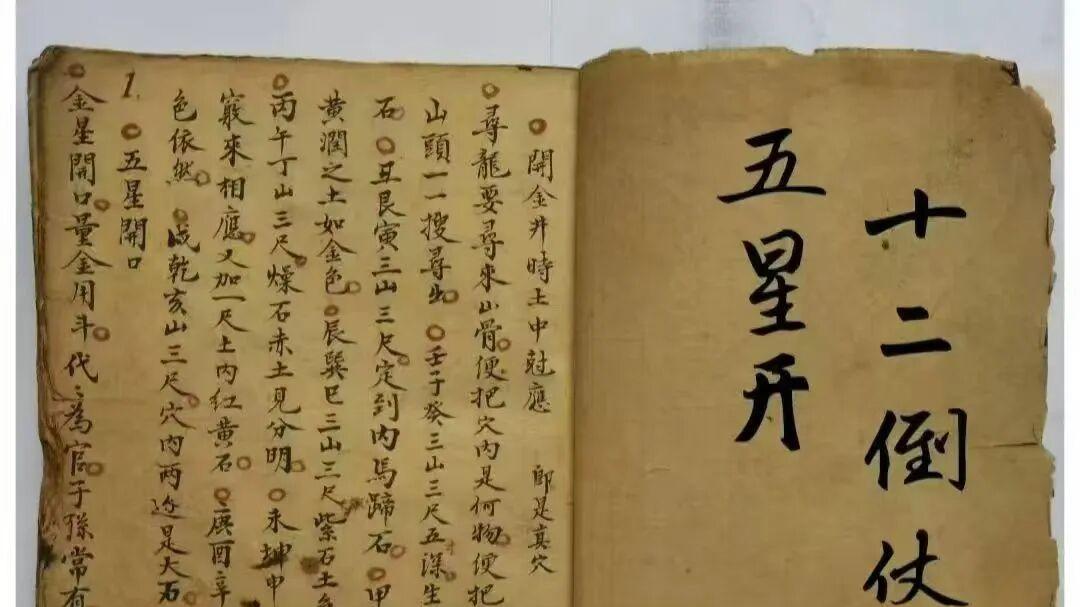 十二倒仗
五星开
開金井時土中尅應 即是真穴
尋龍要尋來山骨便把穴內是何物便把
山頭一一搜尋出 壬子癸三山三尺五深生
石 丑艮寅三山三尺定到內馬蹄石 甲
黃潤之土如金色 辰巽巳三山三尺紫石土
丙午丁山三尺燥石赤土見分明 未坤申
窾來相應又加一尺土內紅黃石 庚酉辛
色依然 戌乾亥山三尺穴內兩边是大石
1. 五星開口
金星開口量金用斗代〻為官子孫常有